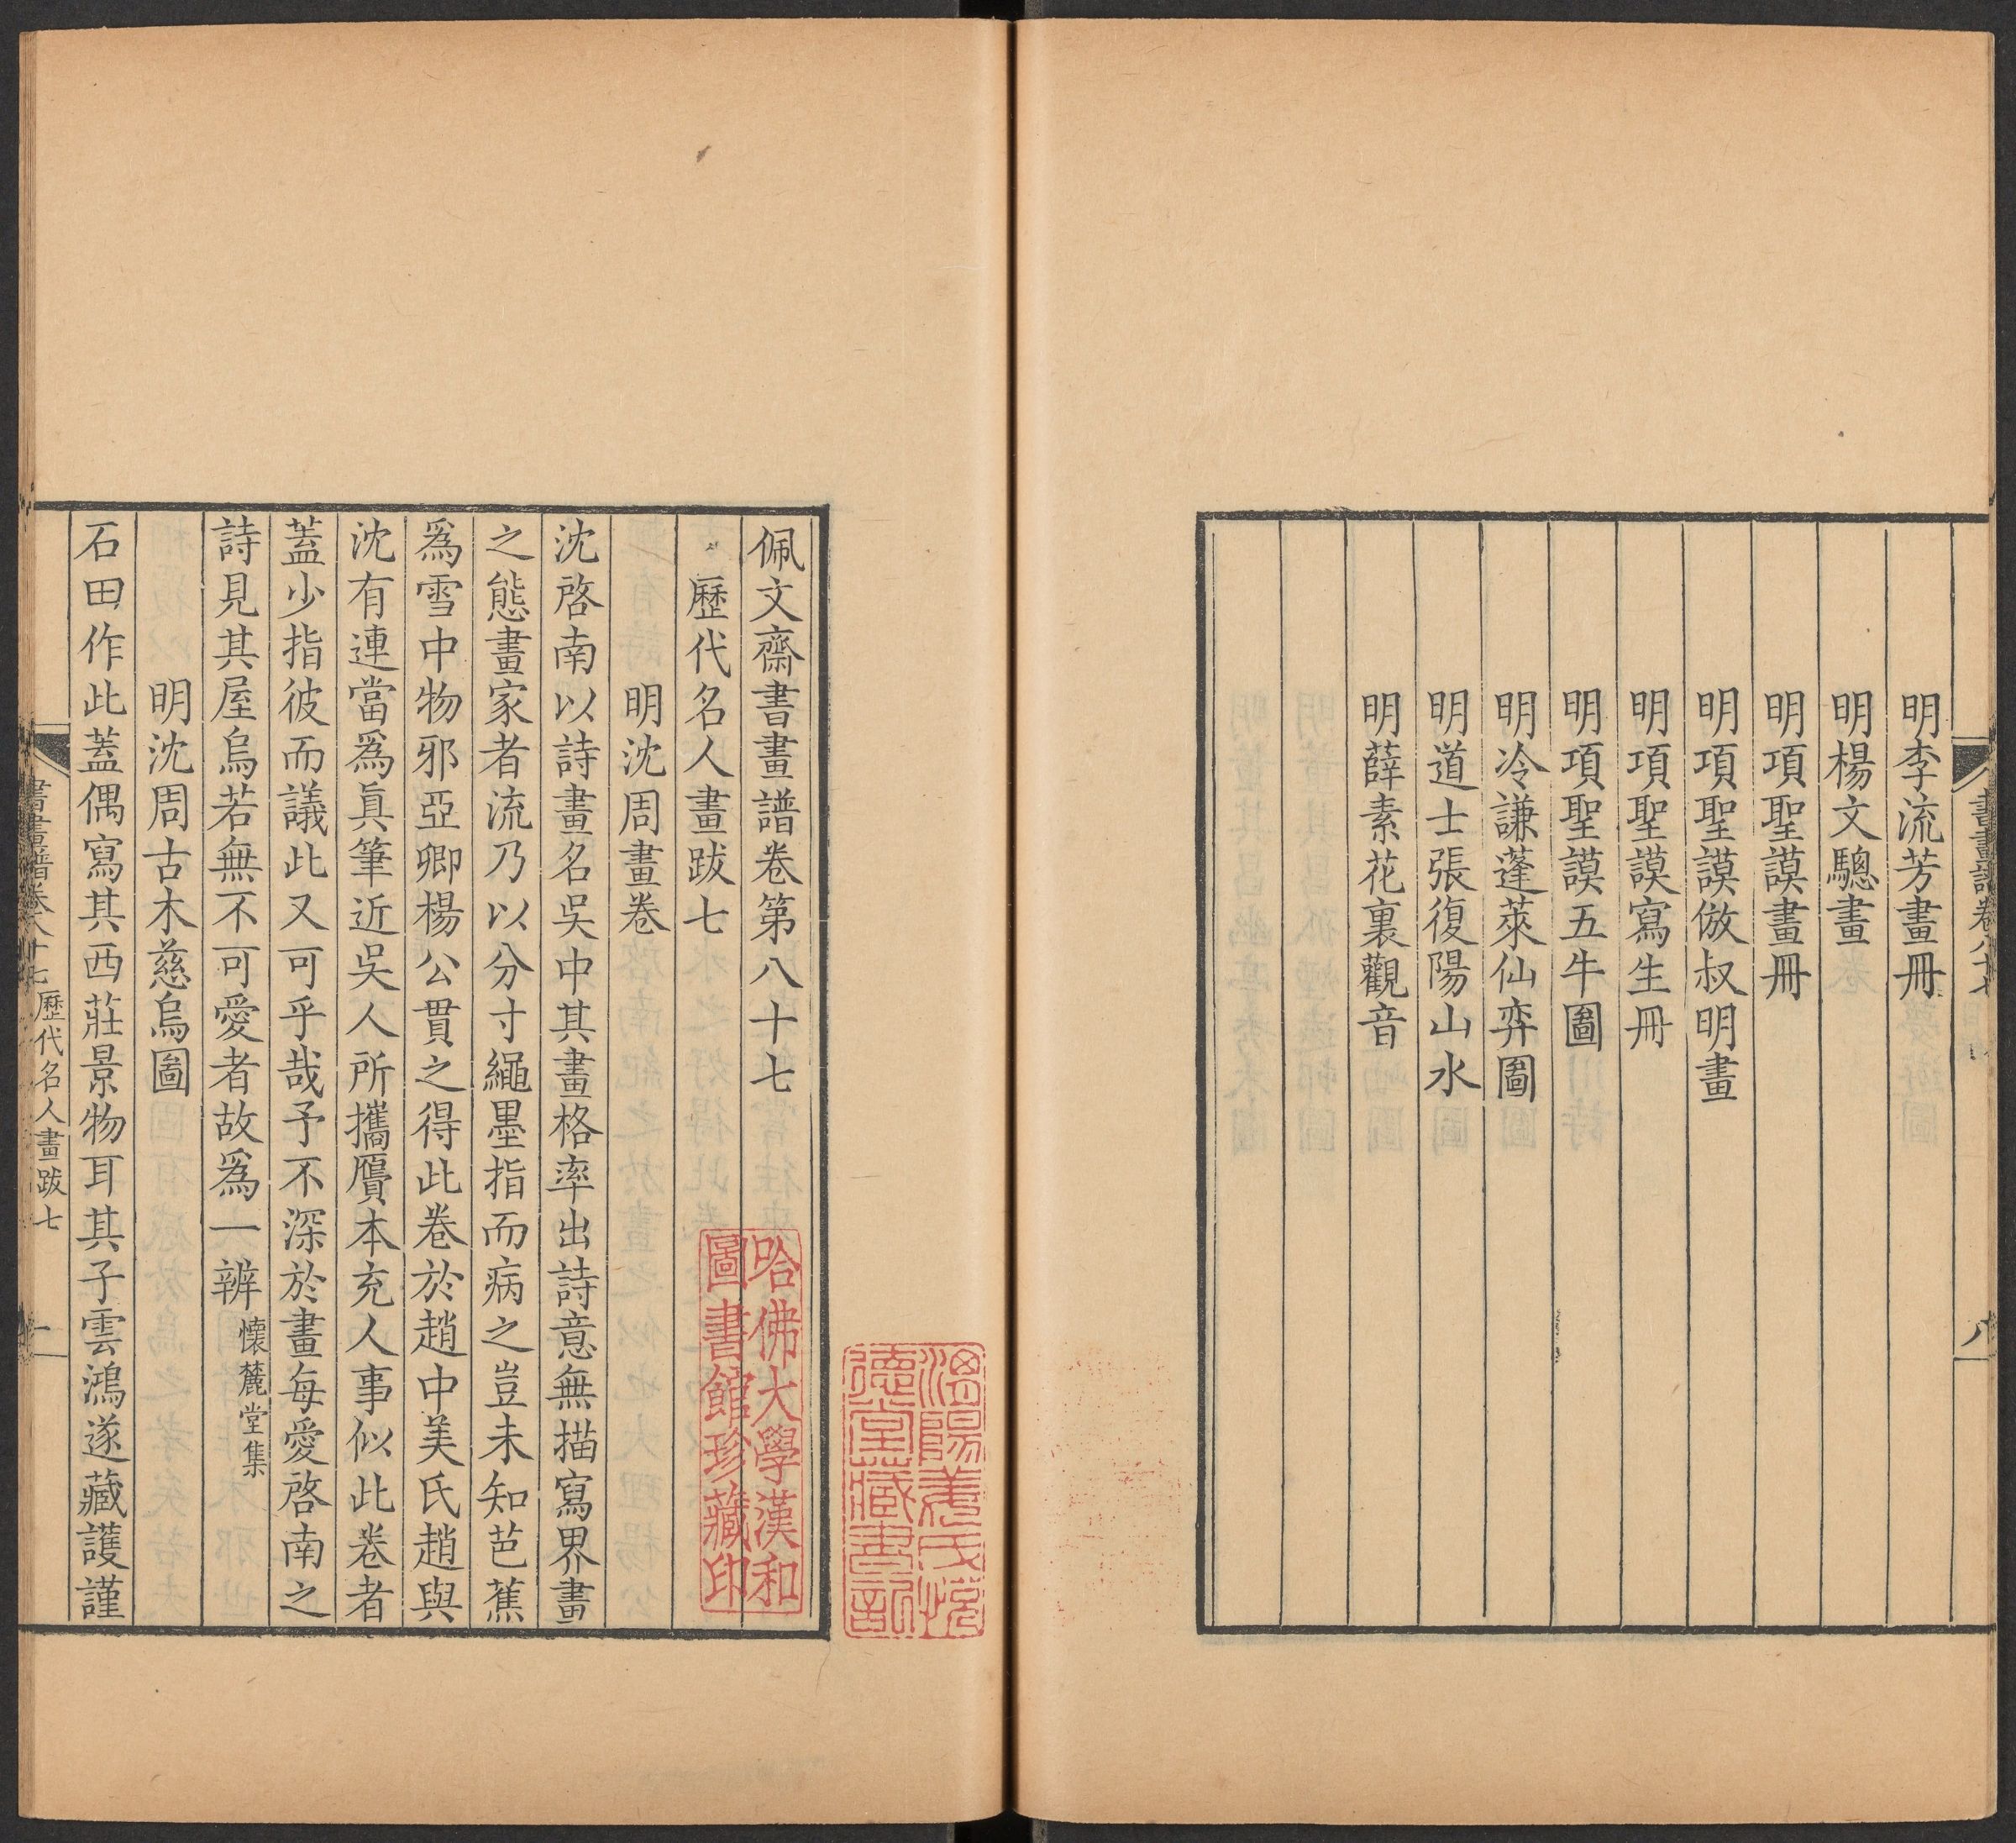 明李流芳畫冊
明楊文驄畫
明項聖謨畫冊
明項聖謨倣叔明畫
明項聖謨寫生冊
明項聖謨五牛圖
明冷謙蓬萊仙弈圖
明道士張復陽山水
明薛素花裏觀音
八
佩文齋書畫譜卷第八十七
歷代名人畫跋七
明沈周畫卷
沈啓南以詩畫名吳中其畫格率出詩意無描寫界畫
之態畫家者流乃以分寸繩墨指而病之豈未知芭蕉
爲雪中物邪亞卿楊公貫之得此卷於趙中美氏趙與
沈有連當爲眞筆近吳人所攜贋本充人事似此卷者
蓋少指彼而議此又可乎哉予不深於畫每愛啓南之
詩見其屋烏若無不可愛者故爲一辨懷麓堂集
明沈周古木慈烏圖
石田作此蓋偶寫其西莊景物耳其子雲鴻遂藏護謹
書畫譜卷八十七 歷代名人畫跋七 一
哈佛大學漢和
圖書館珍藏印
德堂藏書記